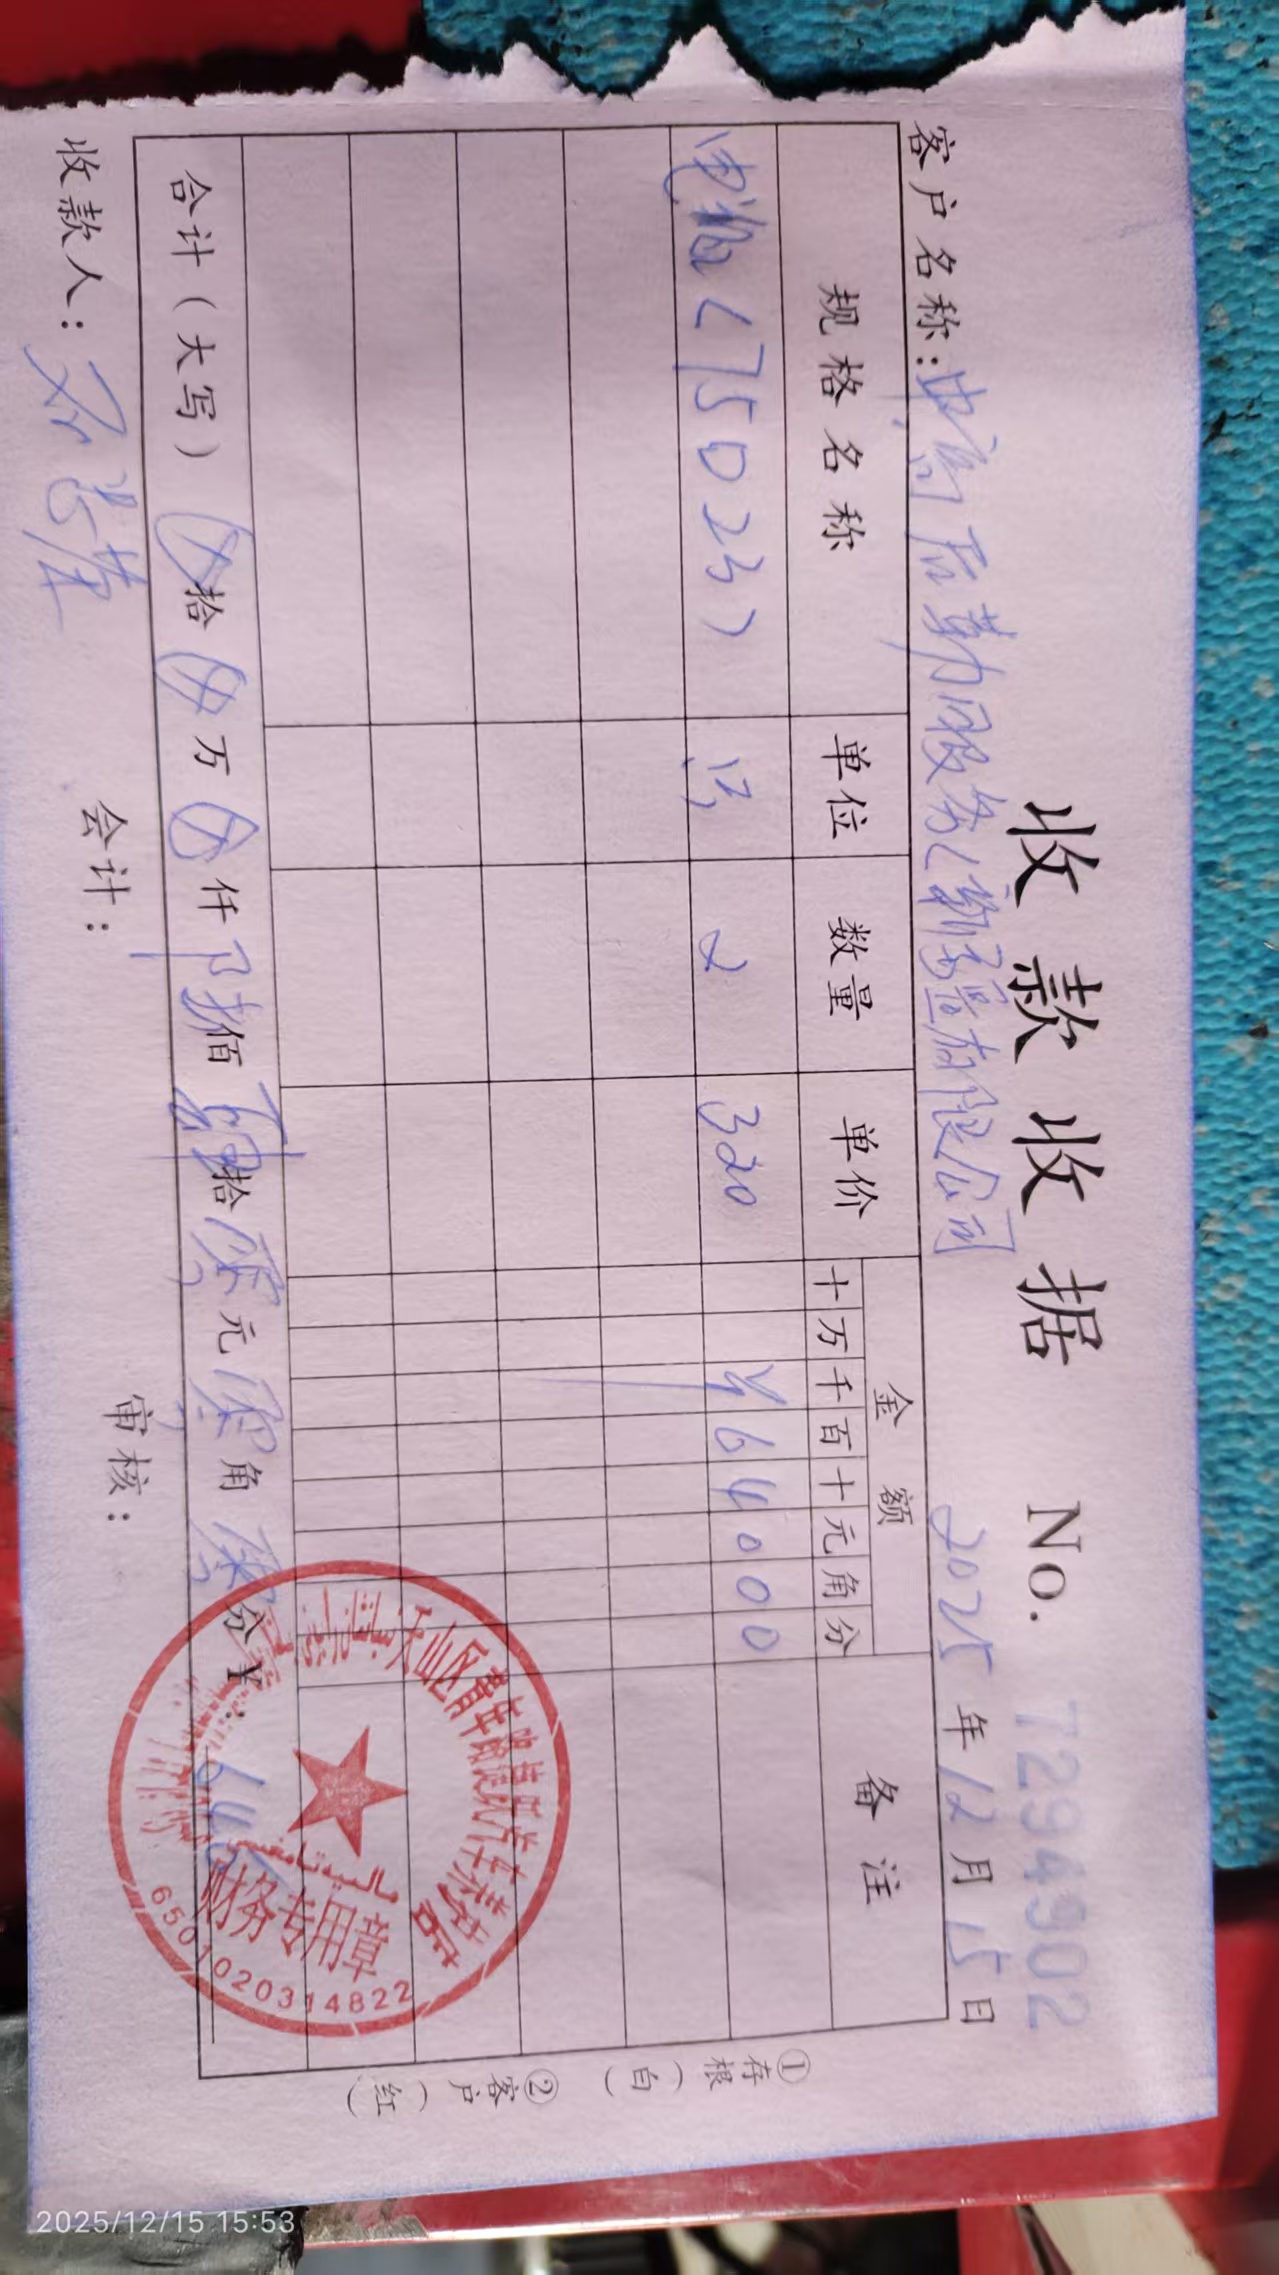 收款收据 No. 7294902
客户名称：中商后勤服务（新疆）有限公司 2025年12月15日
规格名称 单位 数量 单价 金额 备注
十万千百十元角分
电瓶（75D23） 2 320 ¥64000
合计（大写）⊗拾⊗万⊗仟陆佰肆拾零元零角零分 ¥：640
收款人： 会计： 审核：
①存根（白） ②客户（红）
天山区青年路
财务专用章
6501020314822
2025/12/15 15:53